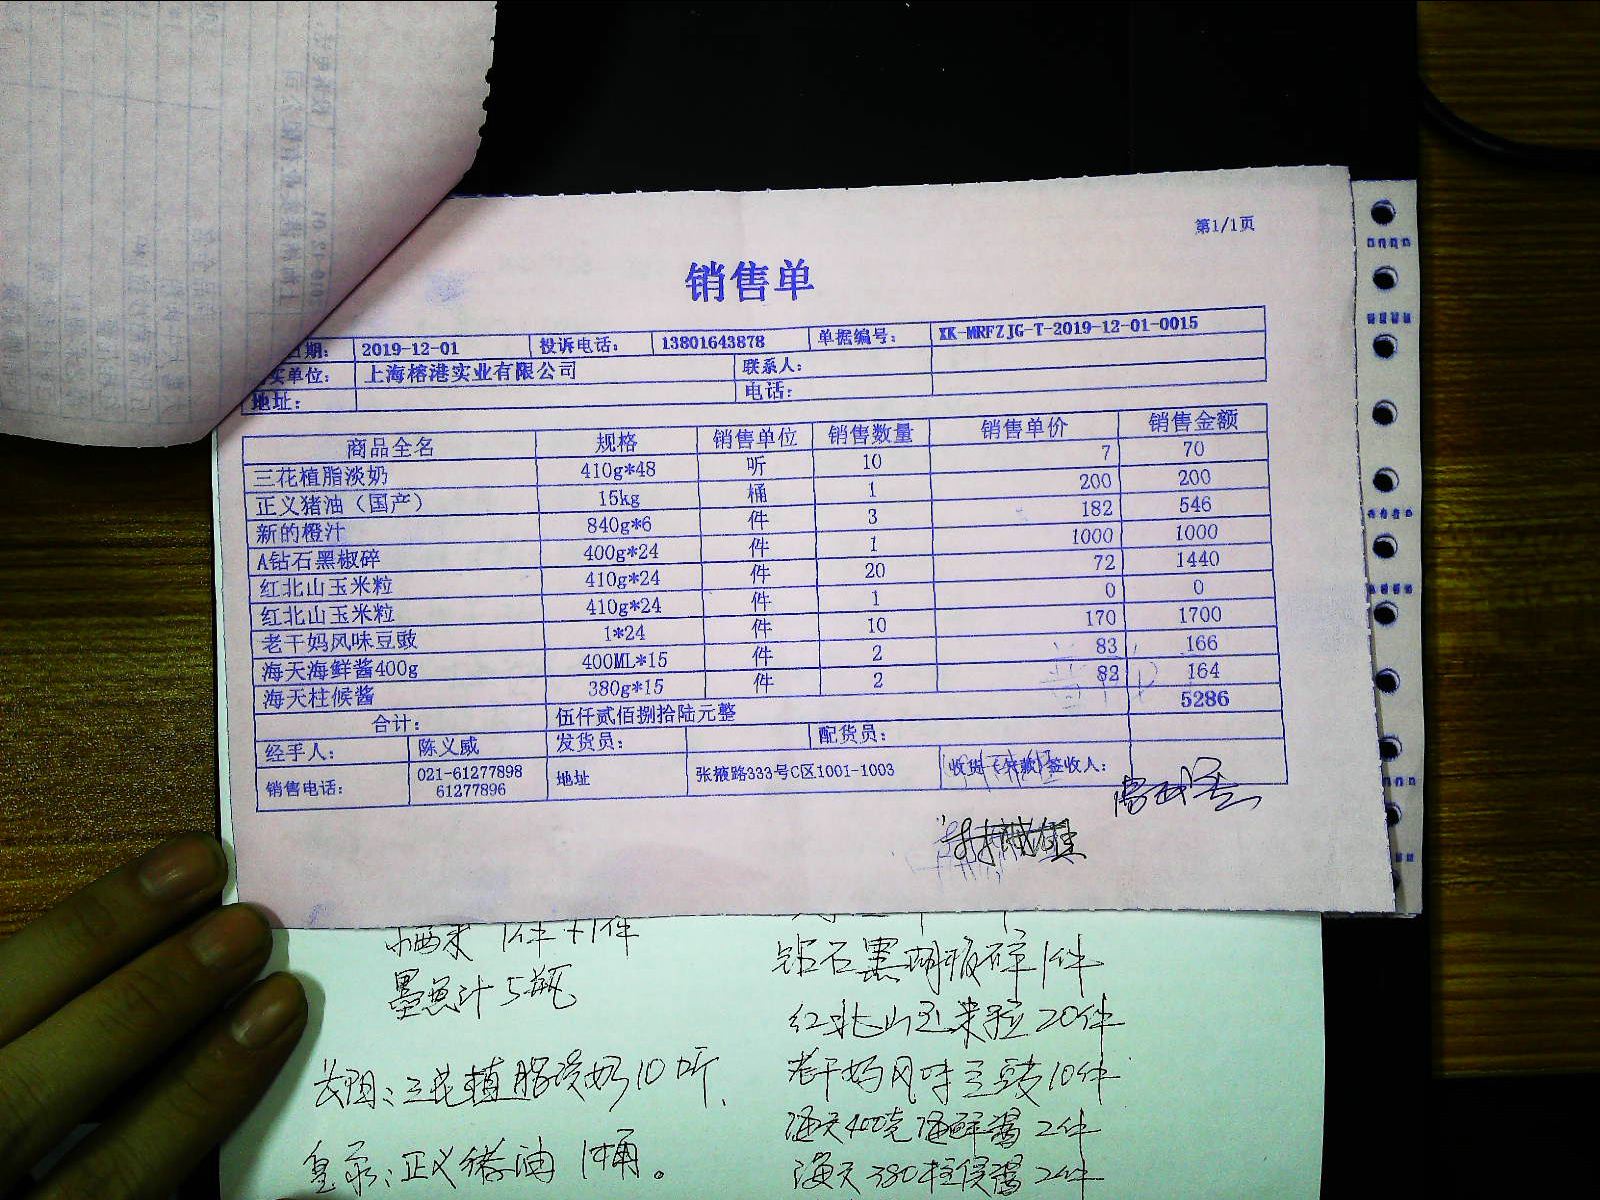 第1/1页
销售单
日期： 2019-12-01 投诉电话： 13801643878 单据编号： XK-MRFZJG-T-2019-12-01-0015
买单位： 上海榕港实业有限公司 联系人：
地址： 电话：
商品全名 规格 销售单位 销售数量 销售单价 销售金额
三花植脂淡奶 410g*48 听 10 7 70
正义猪油（国产） 15kg 桶 1 200 200
新的橙汁 840g*6 件 3 182 546
A钻石黑椒碎 400g*24 件 1 1000 1000
红北山玉米粒 410g*24 件 20 72 1440
红北山玉米粒 410g*24 件 1 0 0
老干妈风味豆豉 1*24 件 10 170 1700
海天海鲜酱400g 400ML*15 件 2 83 166
海天柱候酱 380g*15 件 2 82 164
合计： 伍仟贰佰捌拾陆元整 5286
经手人： 陈义威 发货员： 配货员：
销售电话： 021-61277898 61277896 地址 张掖路333号C区1001-1003 收货(欠款)签收人：
西米 1件+1件
墨鱼汁 5瓶
三花植脂淡奶10听
正义猪油 1桶。
钻石黑胡椒碎1件
红北山玉米粒20件
老干妈风味豆豉10件
海天400克海鲜酱2件
海天380柱侯酱2件